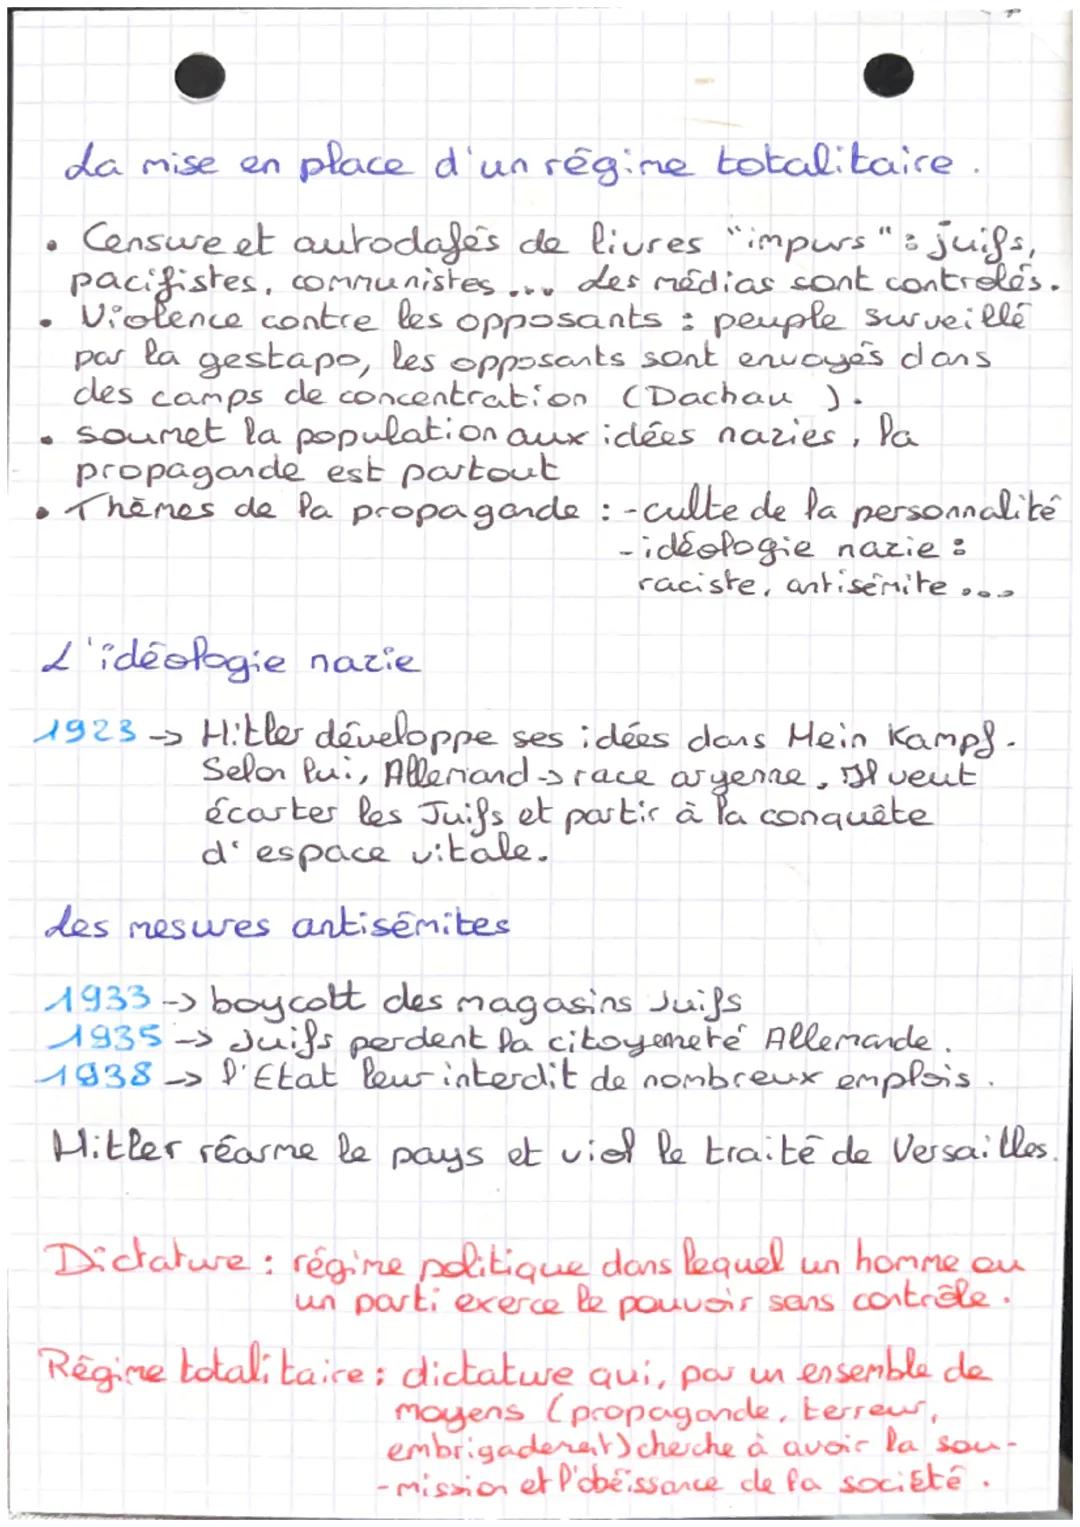 La mise en place d'un régime totalitaire.
• Censure et autodafés de livres "impurs" : juifs,
pacifistes, communistes... Les médias sont controlés.
• Violence contre les opposants : peuple surveillé
par la gestapo, les opposants sont envoyés dans
des camps de concentration (Dachau ).
• soumet la population aux idées nazies, la
propagande est partout
• Thèmes de la propagande : - culte de la personnalité
- idéologie nazie :
raciste, antisémite ...
L'idéologie nazie
1923 -> Hitler développe ses idées dans Mein Kampf.
Selon lui, Allemand -> race aryenne, Il veut
écarter les Juifs et partir à la conquête
d'espace vitale.
Les mesures antisémites
1933 -> boycott des magasins Juifs
1935 -> Juifs perdent la citoyeneté Allemande.
1938 -> l'Etat leur interdit de nombreux emplois.
Hitler réarme le pays et viol le traité de Versailles.
Dictature : régime politique dans lequel un homme ou
un parti exerce le pouvoir sans contrôle.
Régime totalitaire : dictature qui, par un ensemble de
moyens (propagande, terreur,
embrigadement) cherche à avoir la sou-
-mission et l'obéissance de la société.